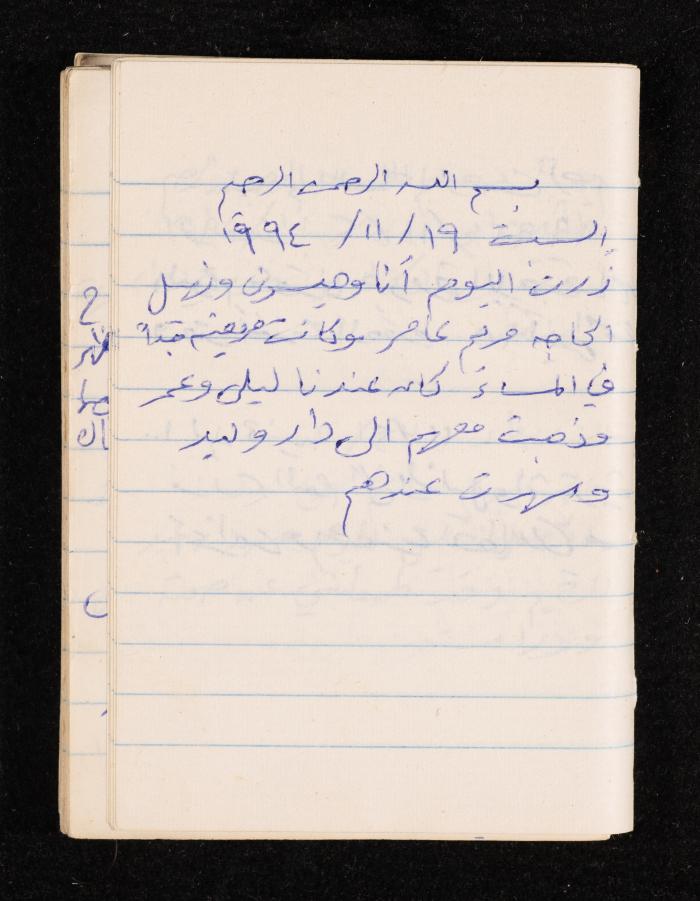 بسم الله الرحمن الرحيم
السبت ١٩ / ١١ / ١٩٩٤
زرت اليوم أنا وميسون ونهيل
الحاجه مريم عامر وكانت مريضه جداً
في المساء كان عندنا ليلى وعمر
وذهبت معهم الى دار وليد
وسهرت عندهم